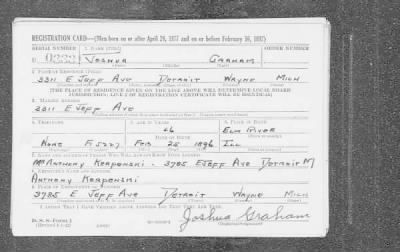 REGISTRATION CARD—(Men born on or after April 28, 1877 and on or before February 16, 1897)
SERIAL NUMBER 1. NAME (Print) ORDER NUMBER
U Joshua Graham
(First) (Middle) (Last)
2. PLACE OF RESIDENCE (Print)
3311 E Jeff Ave Detroit Wayne Mich
[THE PLACE OF RESIDENCE GIVEN ON THE LINE ABOVE WILL DETERMINE LOCAL BOARD
JURISDICTION; LINE 2 OF REGISTRATION CERTIFICATE WILL BE IDENTICAL]
3. MAILING ADDRESS
3311 E Jeff Ave
4. TELEPHONE 5. AGE IN YEARS 6. PLACE OF BIRTH
46 Elm River
None Feb 25 1896 Ill
7. NAME AND ADDRESS OF PERSON WHO WILL ALWAYS KNOW YOUR ADDRESS
Mr Anthony Karpenski 3785 E Jeff Ave Detroit M
8. EMPLOYER'S NAME AND ADDRESS
Anthony Karpenski
9. PLACE OF EMPLOYMENT OR BUSINESS
3785 E Jeff Ave Detroit Wayne Mich
I AFFIRM THAT I HAVE VERIFIED ABOVE ANSWERS AND THAT THEY ARE TRUE.
D. S. S. Form 1
Joshua Graham